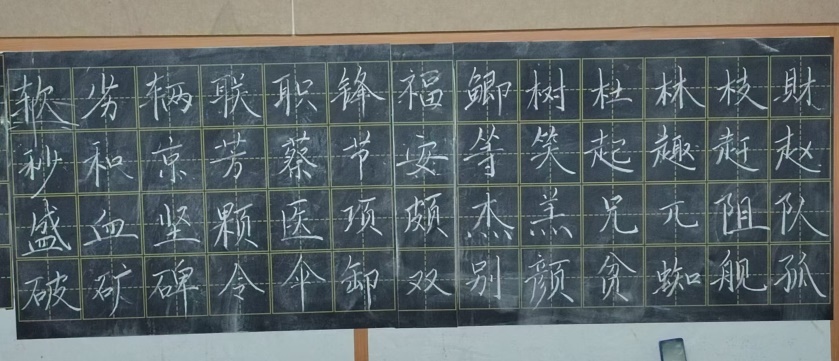 软劣辆联职锋福鲫树杜林枝財
秒和京芳蔡节安等笑起趣赶赵
盛血坚颗医项颇杰羔兄兀阻队
破矿碑令伞卸双别颜贫蜘舰孤